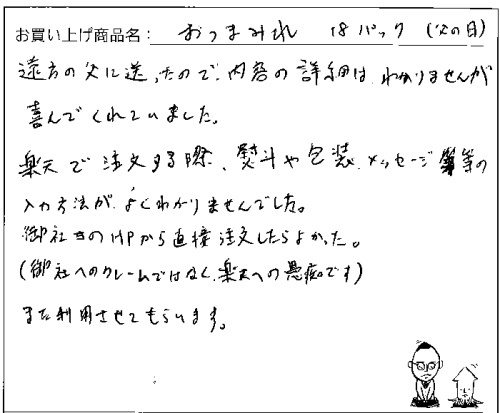 お買い上げ商品名： おつまみれ 18パック (父の日)
遠方の父に送ったので、内容の詳細は、わかりませんが
喜んでくれていました。
楽天で注文する際、熨斗や包装、メッセージ等の
入力方法が、よくわかりませんでした。
御社のHPから直接注文したらよかった。
(御社へのクレームではなく、楽天への愚痴です)
また利用させてもらいます。